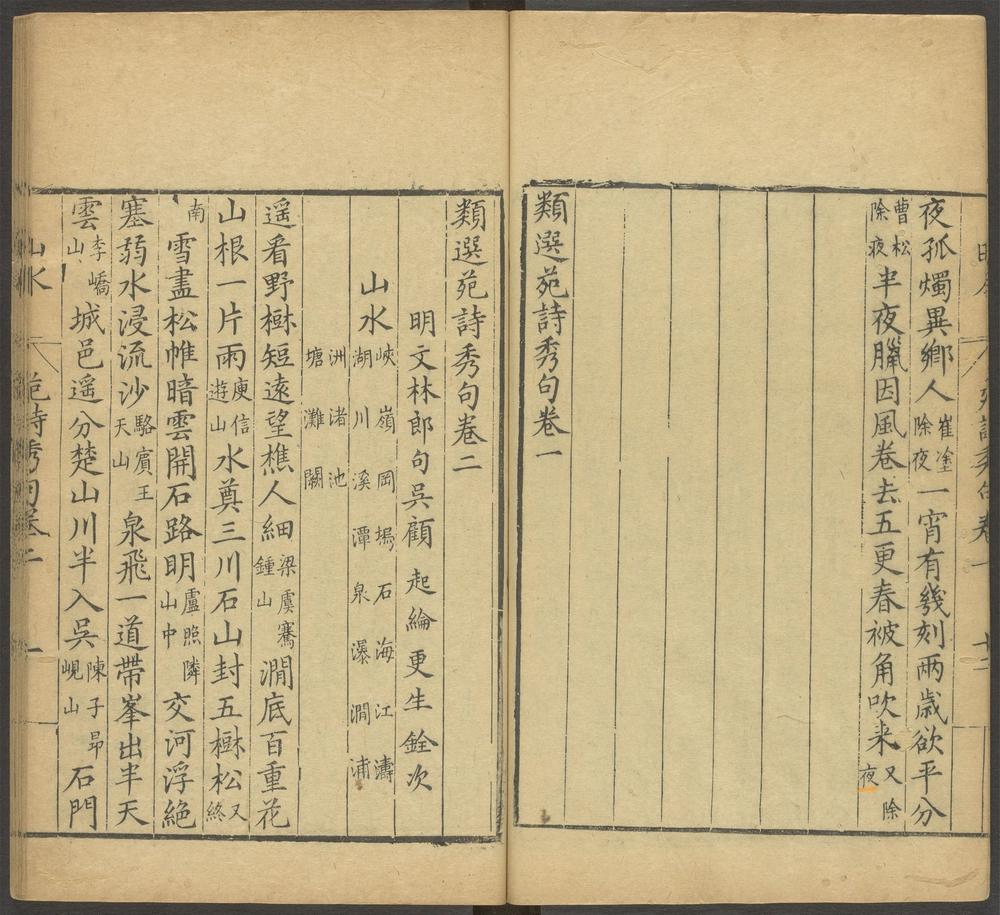 夜孤燭異鄉人崔塗除夜一宵有幾刻兩歲欲平分
曹松除夜半夜臘因風卷去五更春被角吹来又除夜
類選苑詩秀句卷一
類選苑詩秀句卷二
明文林郎句吳顧起綸更生銓次
山水
峽嶺岡塢石海江濤
湖川溪潭泉瀑澗浦
洲渚池
塘灘關
遥看野樹短遠望樵人細梁虞騫鍾山澗底百重花
山根一片雨庾信遊山水奠三川石山封五樹松又終
南雪盡松帷暗雲開石路明盧照隣山中交河浮絕
塞弱水浸流沙駱賓王天山泉飛一道帶峯出半天
雲李嶠山城邑遥分楚山川半入吳陳子昂峴山石門
山水 苑詩秀句卷二 一